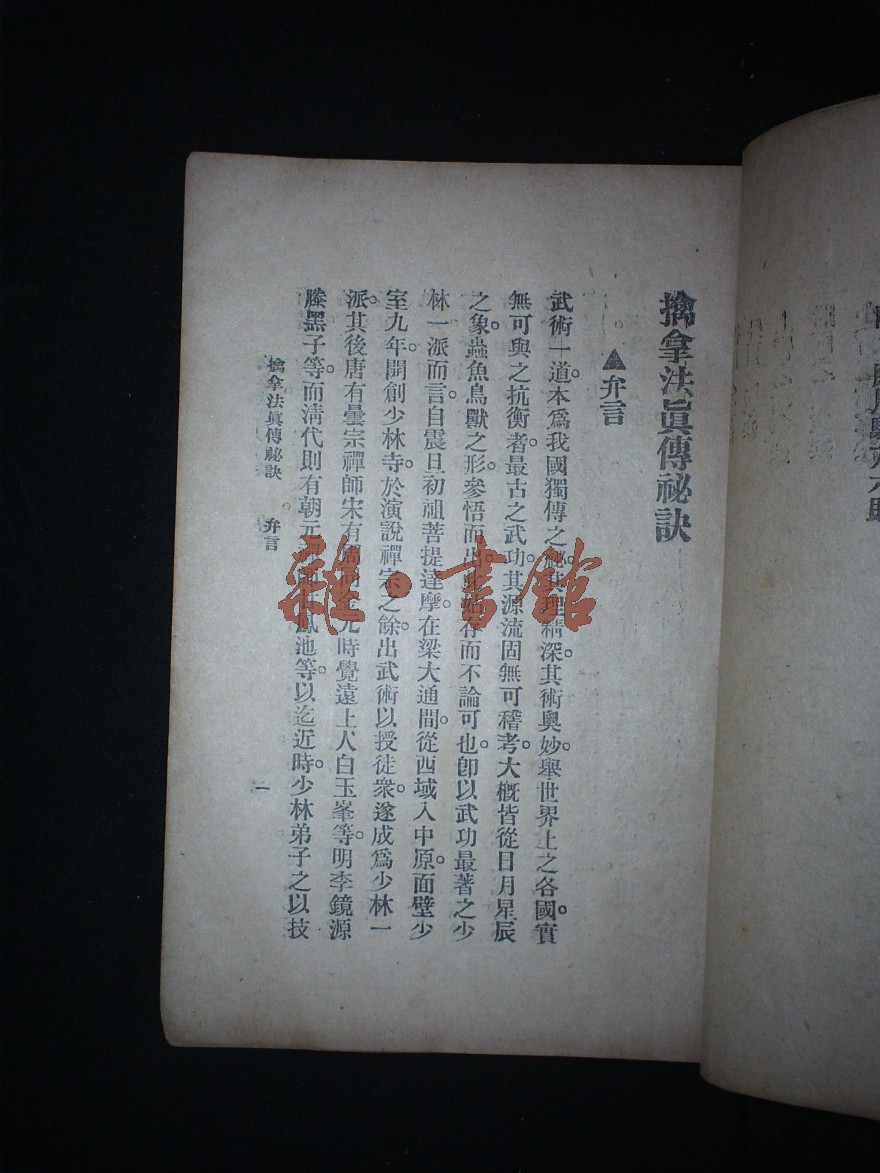 擒拿法眞傳祕訣
▲弁言
武術一道。本爲我國獨傳之祕。其理精深。其術奧妙。舉世界上之各國。實
無可與之抗衡者。最古之武功。其源流固無可稽考。大概皆從日月星辰
之象。蟲魚鳥獸之形。參悟而出。存而不論可也。卽以武功最著之少
林一派而言。自震旦初祖菩提達摩。在梁大通間。從西域入中原。面壁少
室九年。開創少林寺。於演說禪宗之餘。出武術以授徒衆。遂成爲少林一
派。其後唐有曇宗禪師。宋有。金元時覺遠上人白玉峯等。明李鏡源
滕黑子等。而淸代則有朝元鳳池等。以迄近時。少林弟子之以技
擒拿法眞傳祕訣 弁言
一
雜·書館